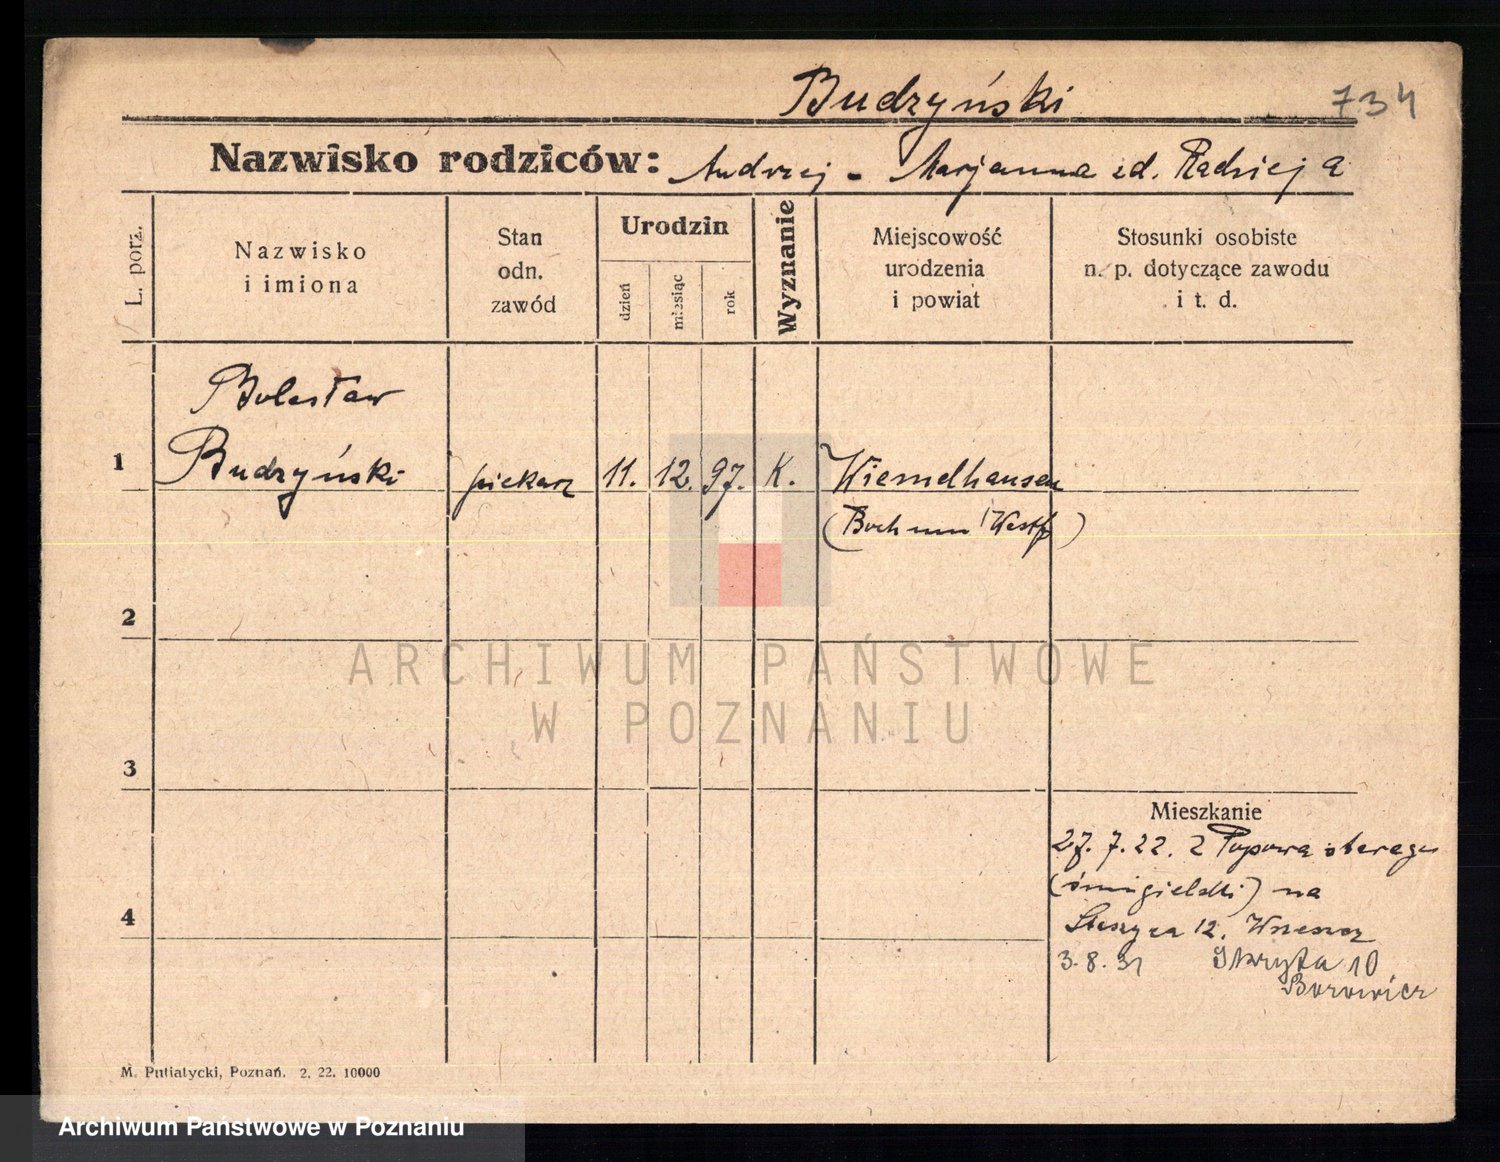 Budrzyński 734
Nazwisko rodziców: Andrzej - Marjanna zd. Radziej a
L. porz.
Nazwisko i imiona
Stan odn. zawód
Urodzin
dzień
miesiąc
rok
Wyznanie
Miejscowość urodzenia i powiat
Stosunki osobiste n. p. dotyczące zawodu i t. d.
Bolesław
1 Budrzyński piekarz 11. 12. 97. K. Wiemelhausen
(Bochum Westf)
2
ARCHIWUM PAŃSTWOWE
W POZNANIU
3
Mieszkanie
27. 7. 22. z Popowa starego
(śmigielski) na
4
12.
3. 8. 31 Skryta 10
Borowicz
M. Putiatycki, Poznań. 2. 22. 10000
Archiwum Państwowe w Poznaniu